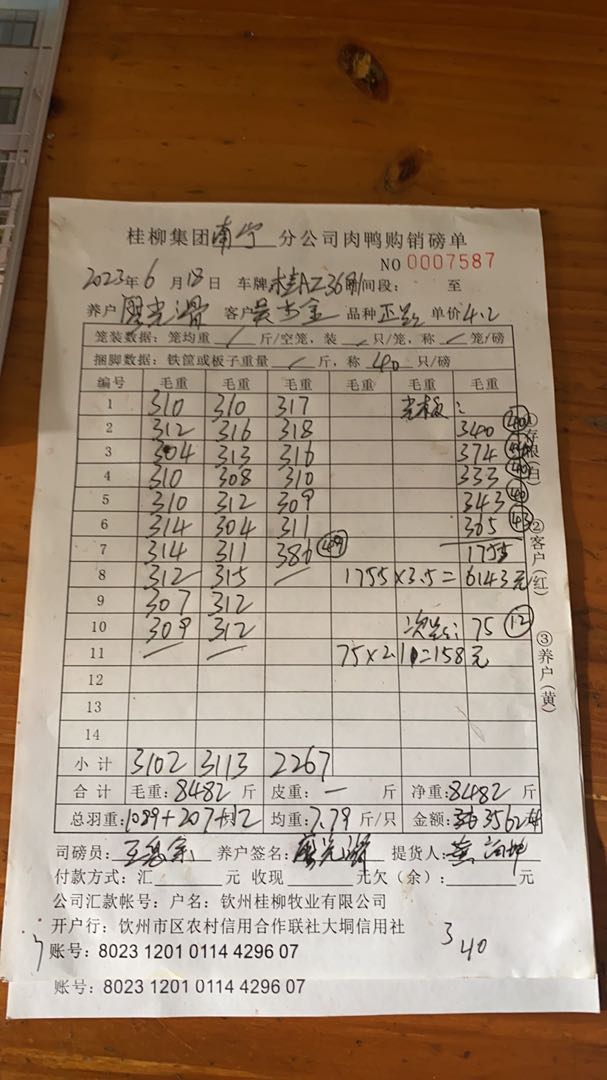 桂柳集团南宁分公司肉鸭购销磅单
NO 0007587
2023年6月18日 车牌 桂AZ36 时间段: 至
养户 客户 吴 金 品种 正 单价 4.2
笼装数据: 笼均重 / 斤/空笼, 装 / 只/笼, 称 / 笼/磅
捆脚数据: 铁筐或板子重量 / 斤, 称 40 只/磅
编号 毛重 毛重 毛重 毛重 毛重 毛重
1 310 310 317 :
2 312 316 318 340
3 304 313 316 374
4 310 308 310 333
5 310 312 309 343
6 314 304 311 365 43
7 314 311 386 49 1755
8 312 315 / 1755×3.5=6143元
9 307 312
10 309 312 次 : 75 12
11 / / 75×2.1=158元
12
13
14
小计 3102 3113 2267
合计 毛重: 8482 斤 皮重: — 斤 净重: 8482 斤
总羽重: 1089+207+12 均重: 7.79 斤/只 金额: 3562
司磅员: 王 养户签名: 提货人:
付款方式: 汇 元 收现 元欠(余): 元
公司汇款帐号: 户名: 钦州桂柳牧业有限公司
开户行: 钦州市区农村信用合作联社大垌信用社
账号: 8023 1201 0114 4296 07
3 40
账号: 8023 1201 0114 4296 07
①存根(白)
②客户(红)
③养户(黄)